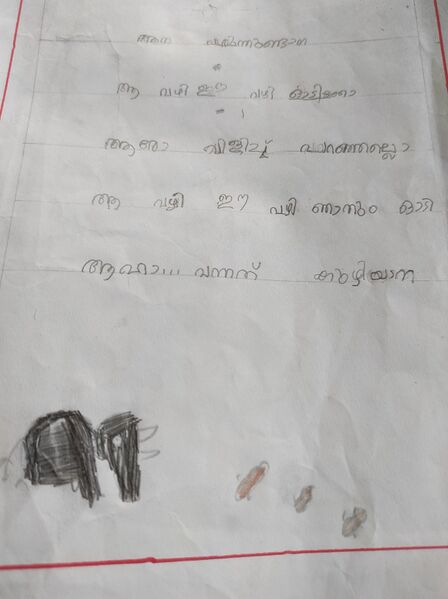 ആന വരുന്നുണ്ടാന
ആ വഴി ഈ വഴി ഓടിക്കോ
ആരോ വിളിച്ച് പറഞ്ഞല്ലൊ
ആ വഴി ഈ വഴി ഞാനും ഓടി
ആഹാ... വന്നത് കുഴിയാന